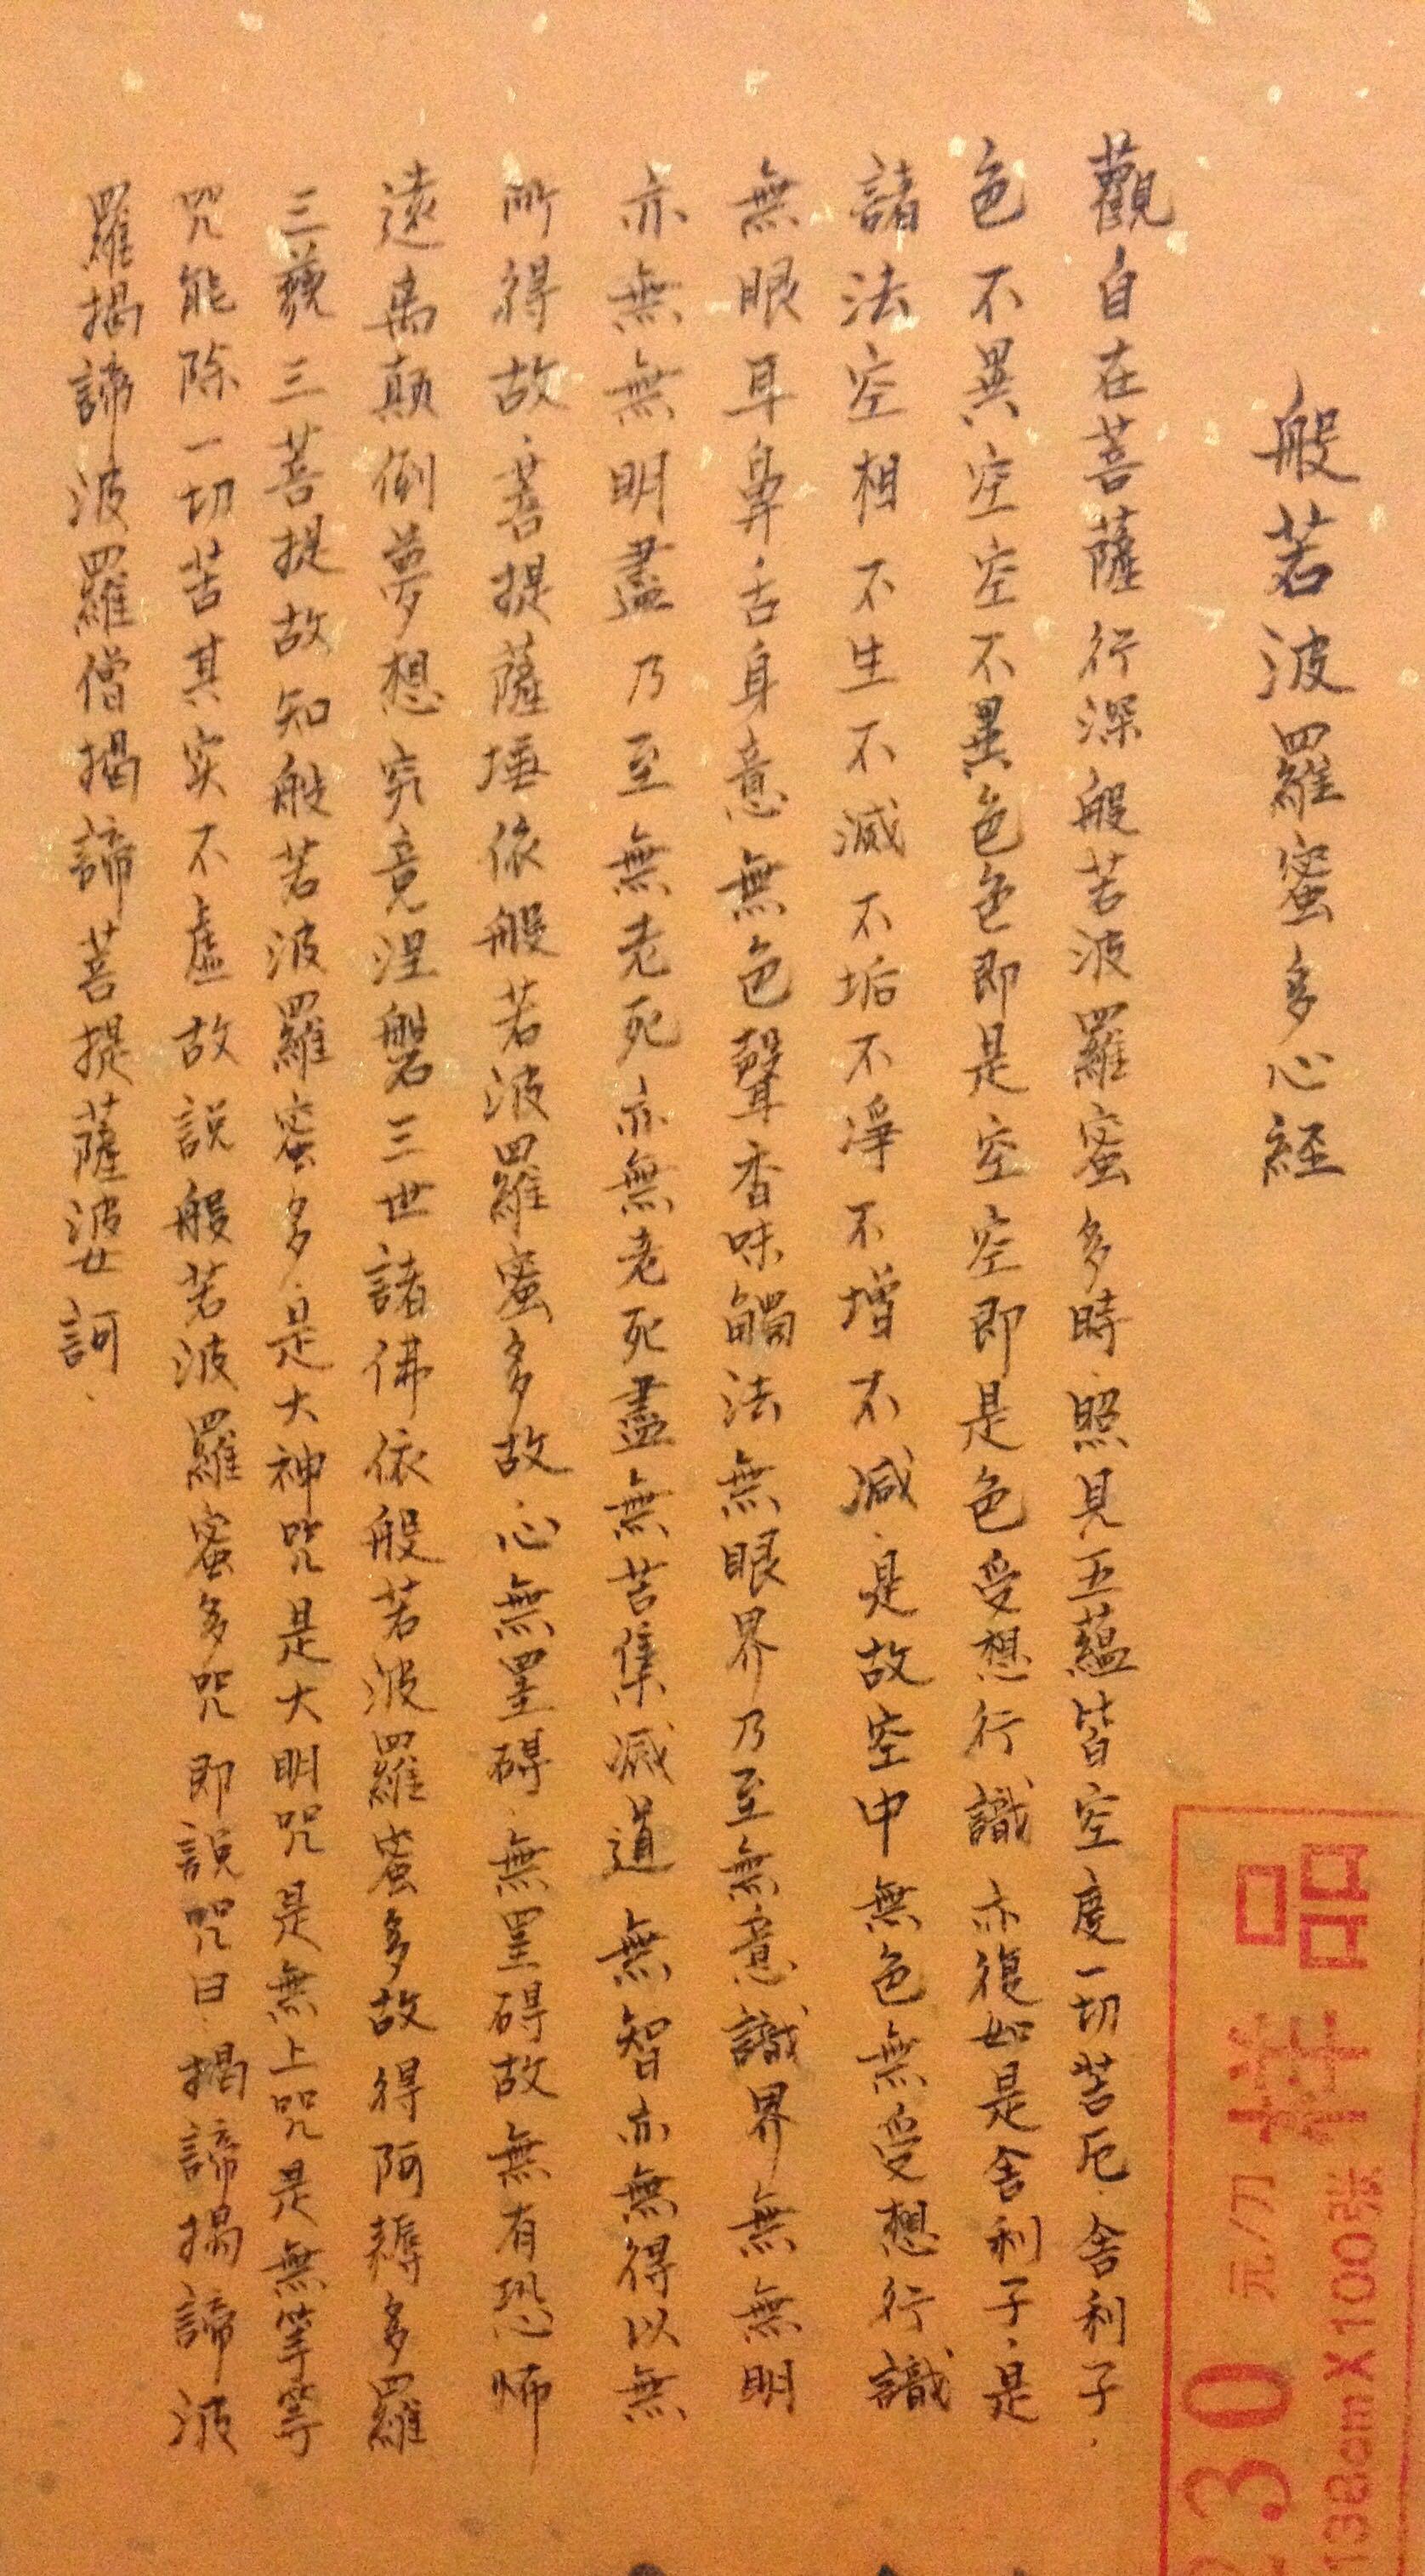 般若波羅蜜多心経
觀自在菩薩行深般若波羅蜜多時.照見五蘊皆空度一切苦厄.舍利子.
色不異空空不異色色即是空空即是色受想行識亦復如是舍利子.是
諸法空相不生不滅不垢不淨不增不減.是故空中無色無受想行識
無眼耳鼻舌身意無色聲香味觸法無眼界乃至無意識界無無明
亦無無明盡乃至無老死亦無老死盡無苦集滅道無智亦無得以無
所得故.菩提薩埵依般若波羅蜜多故心無罣碍.無罣碍故無有恐怖
遠离顛倒夢想究竟涅磐三世諸佛依般若波羅蜜多故得阿耨多羅
三藐三菩提故知般若波羅蜜多.是大神咒是大明咒是無上咒是無等等
咒能除一切苦其实不虛故說般若波羅蜜多咒即說咒曰.揭諦揭諦波
羅揭諦波羅僧揭諦菩提薩婆訶.
品
元/刀
30
138cmX100张